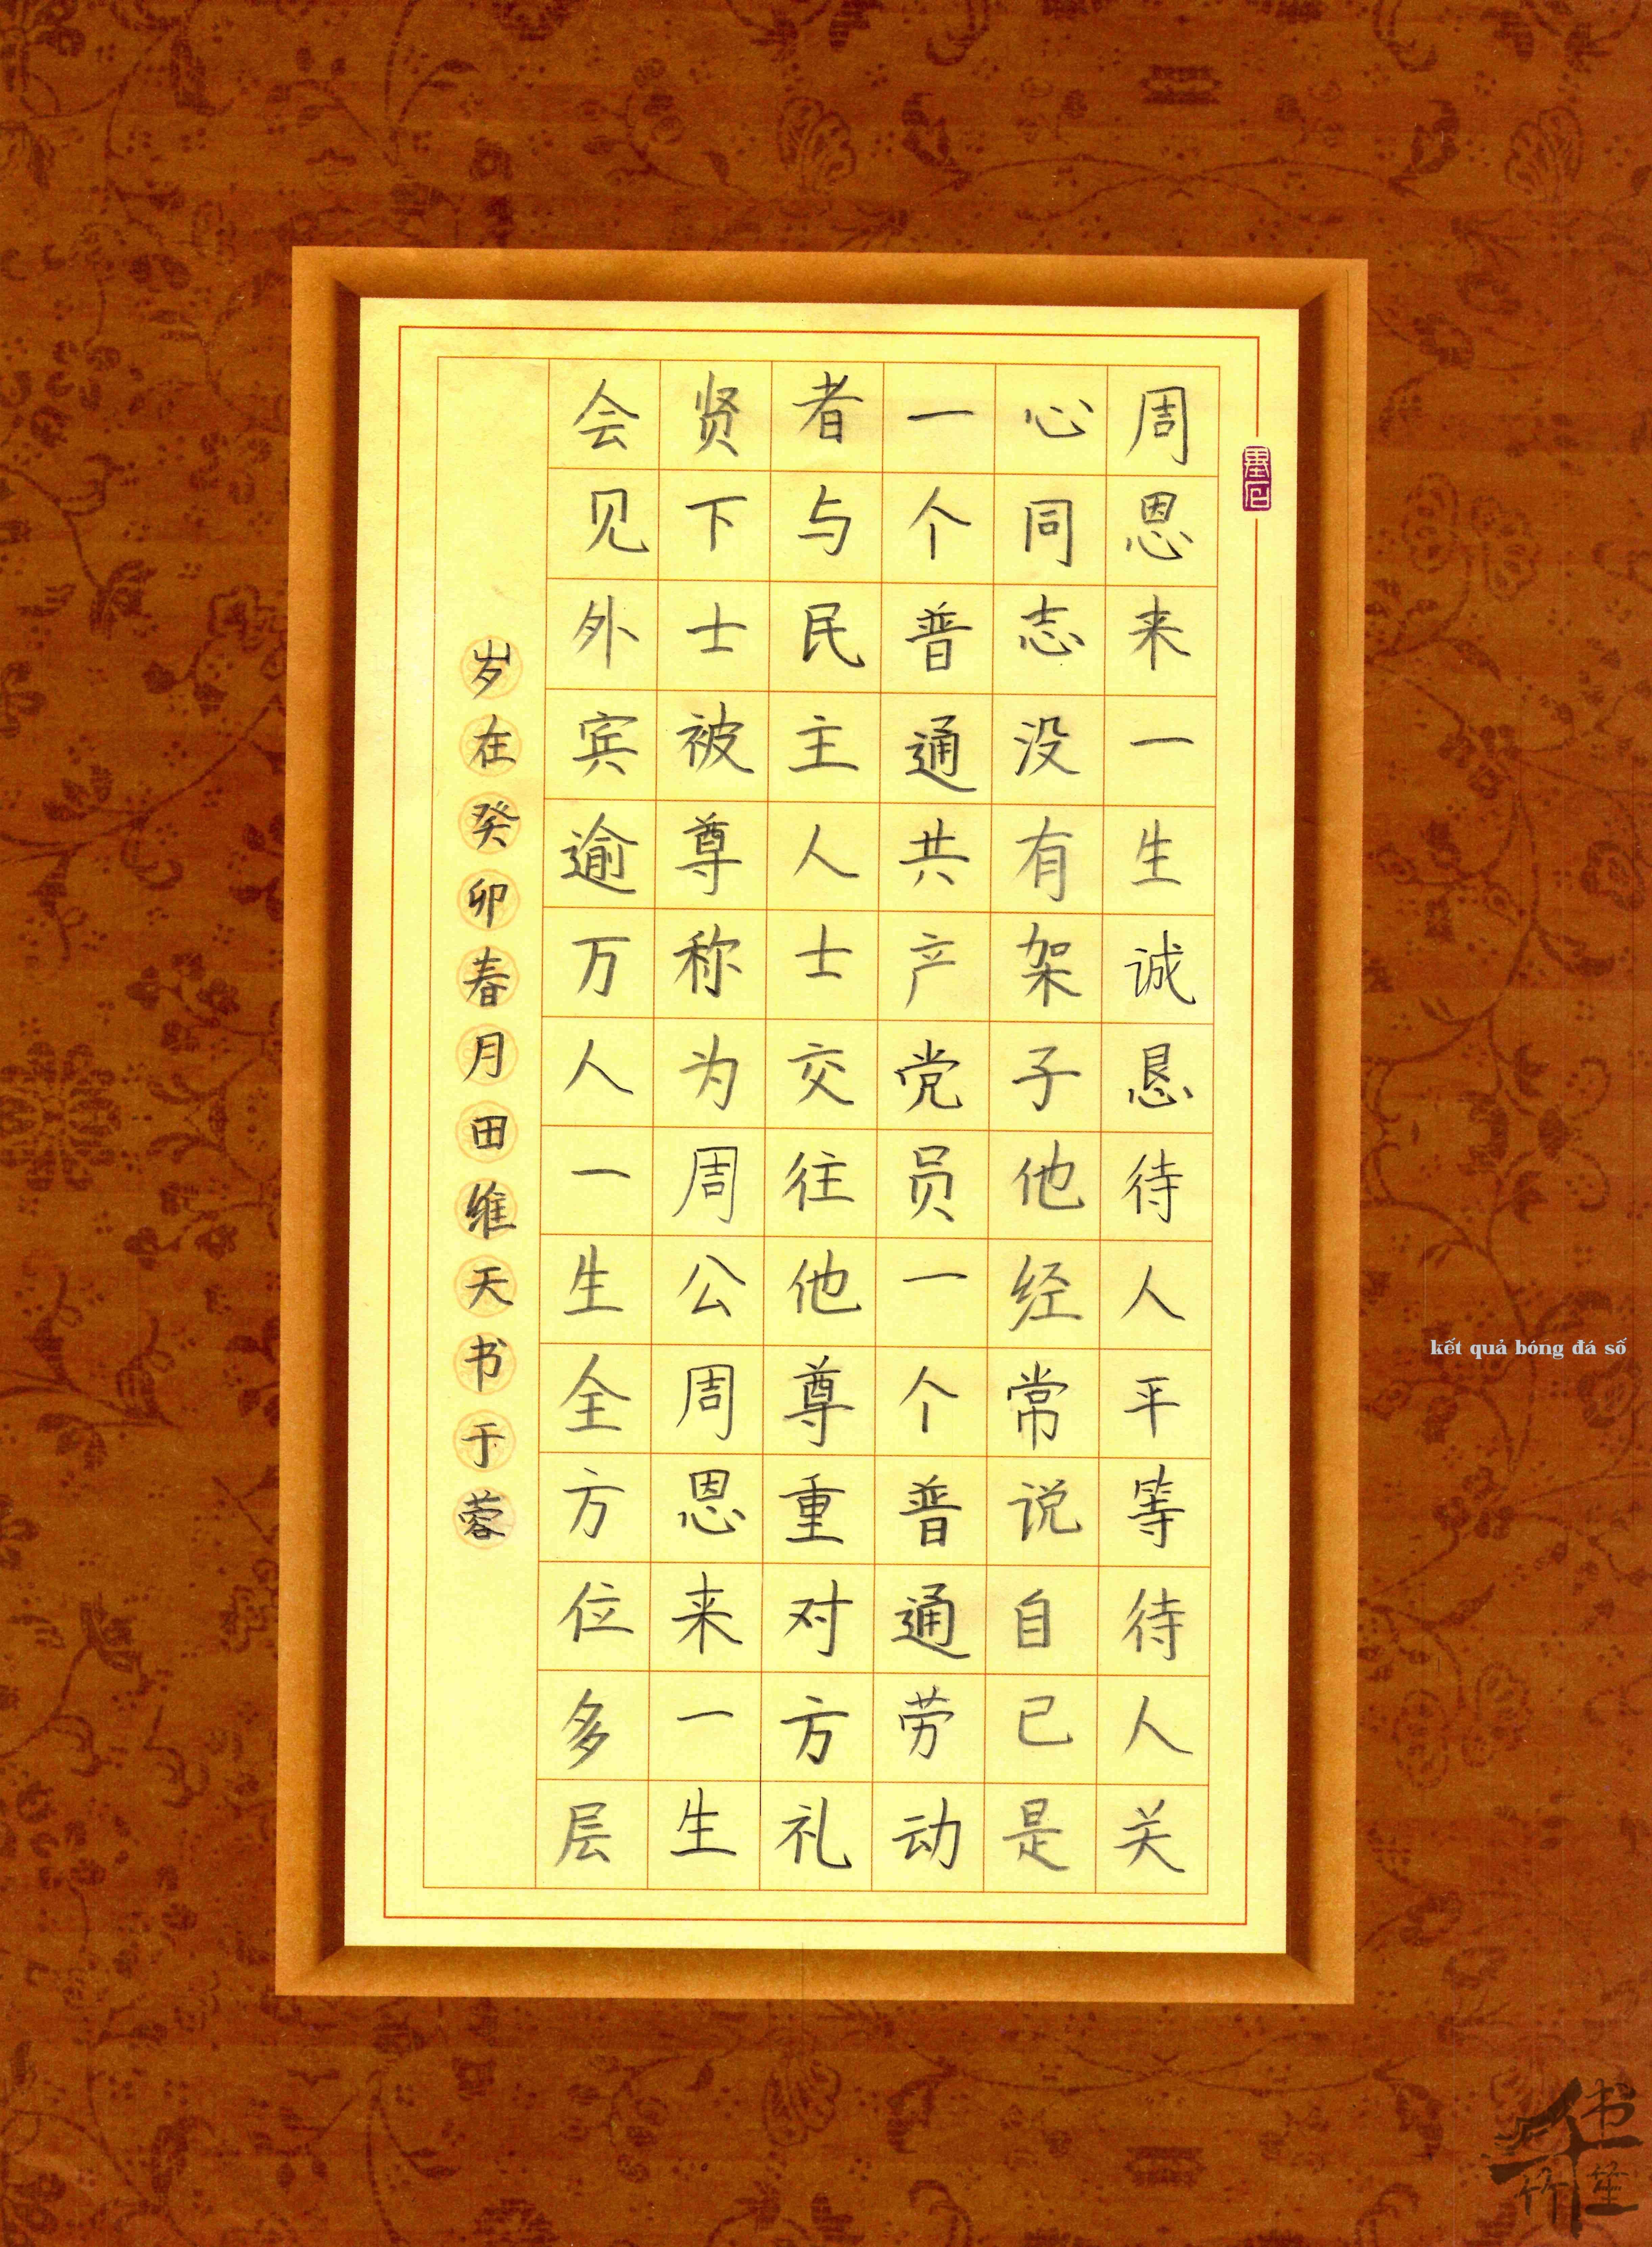 周恩来一生诚恳待人平等待人关
心同志没有架子他经常说自己是
一个普通共产党员一个普通劳动
者与民主人士交往他尊重对方礼
贤下士被尊称为周公周恩来一生
会见外宾逾万人一生全方位多层
岁在癸卯春月田维天书于蓉
kết quả bóng đá số